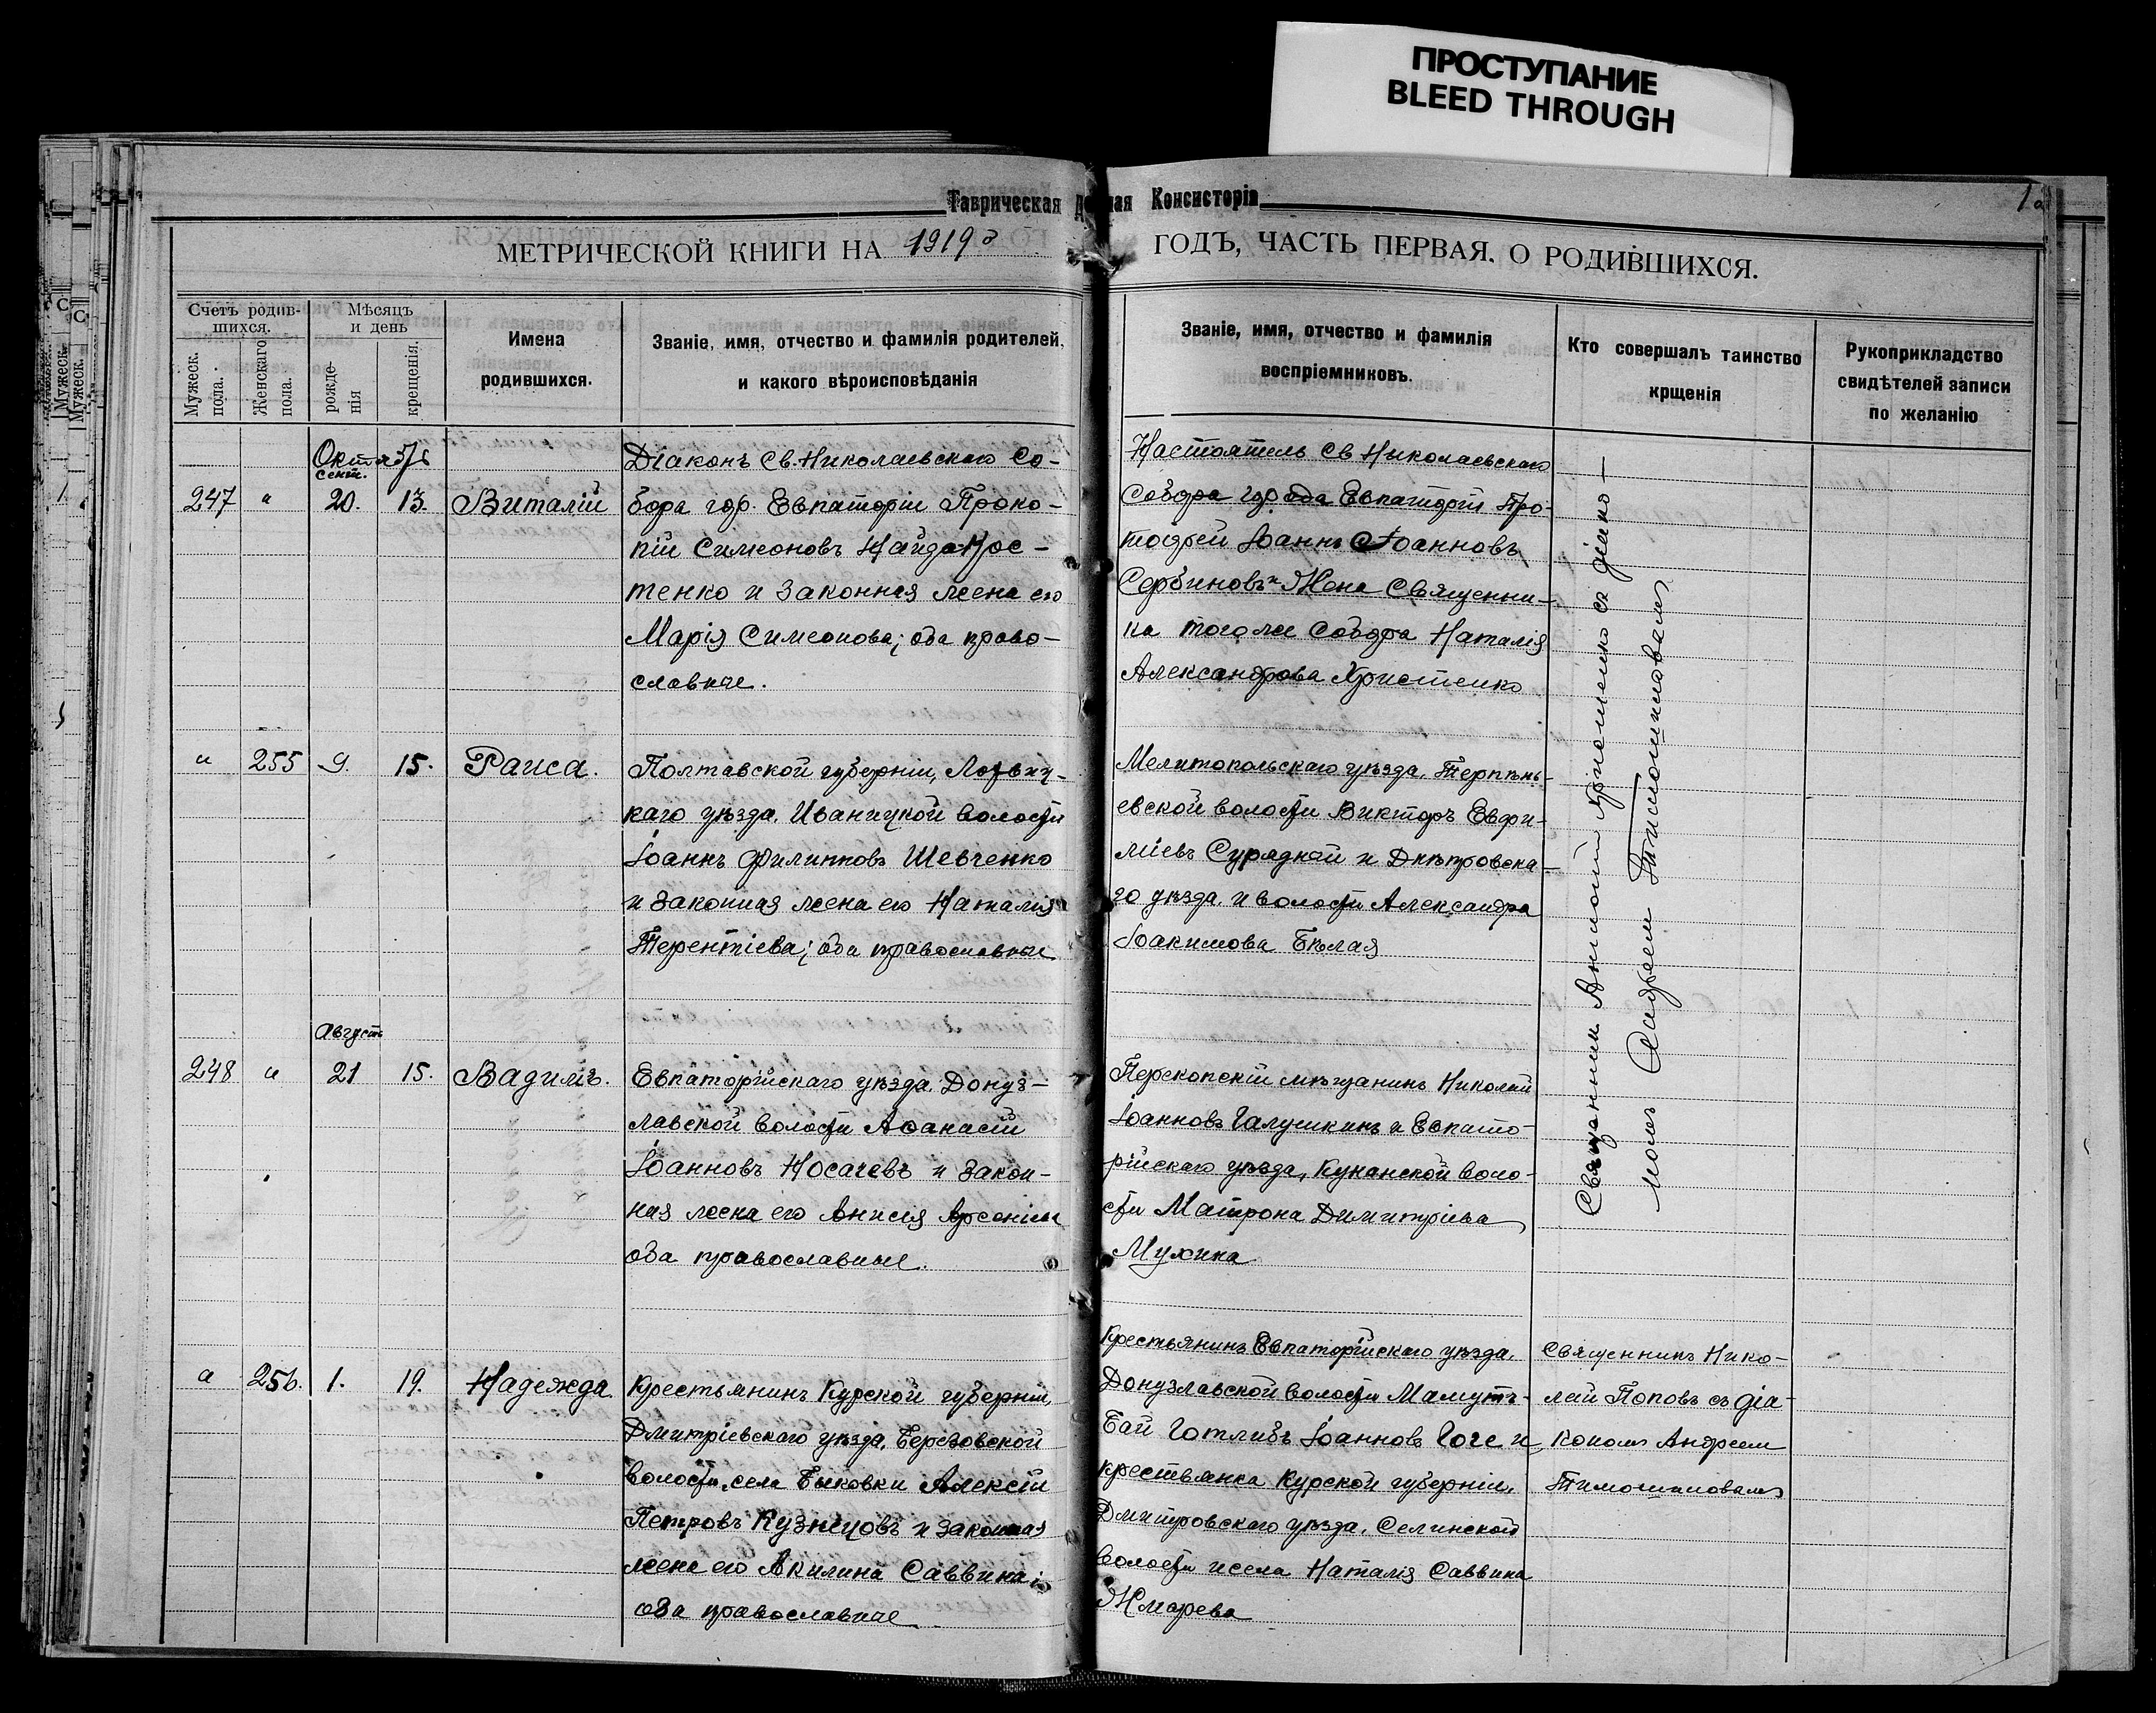 ПРОСТУПАНИЕ
BLEED THROUGH
Таврическая д ная Консисторія
МЕТРИЧЕСКОЙ КНИГИ НА 1919 г
ГОДЪ, ЧАСТЬ ПЕРВАЯ. О РОДИВШИХСЯ.
Счетъ родив-
шихся.
Мужеск.
пола.
Женскаго
пола.
Мѣсяцъ
и день
рожде-
нія
крещенія.
Имена
родившихся.
Званіе, имя, отчество и фамилія родителей,
и какого вѣроисповѣданія
Званіе, имя, отчество и фамилія
воспріемниковъ.
Кто совершалъ таинство
крщенія
Рукоприкладство
свидѣтелей записи
по желанію
сент.
247 " 20. 13. Виталій
Діаконъ Св. Николаевскаго Со-
бора гор. Евпаторіи Проко-
пій Симеоновъ Найда-Кос-
тенко и законная жена его
Марія Симеонова; оба право-
славные.
Настоятель Св Николаевскаго
Собора города Евпаторіи Про-
тоіерей Іоаннъ Іоанновъ
Сербиновъ и Жена Священни-
ка того же Собора Наталія
Александрова Христенко
" 255 9. 15. Раиса.
Полтавской губерніи, Лохвиц-
каго уѣзда, Иваницкой волости
Іоаннъ Филипповъ Шевченко
и законная жена его Наталія
Терентіева; оба православные
Мелитопольскаго уѣзда, Терпѣнь-
евской волости Викторъ Евфи-
міевъ Сурядной и Днѣпровска-
го уѣзда, и волости Александра
Іоакимова Бѣлая
Священник Антоній Христенко съ діако-
номъ Андреем Тимошиновымъ
Августъ
248 " 21 15. Вадимъ.
Евпаторійскаго уѣзда Донуз-
лавской волости Аѳанасій
Іоанновъ Носачевъ и закон-
ная жена его Анисія Арсеніева
оба православные.
Перекопскій мѣщанинъ Николай
Іоанновъ Галушкинъ и Евпато-
рійскаго уѣзда, Кунанской воло-
сти Матрона Димитріева
Мухина
" 256. 1. 19. Надежда.
Крестьянинъ Курской губерніи,
Дмитріевскаго уѣзда, Березовской
волости, села Быковки Алексій
Петровъ Кузнецовъ и законная
жена его Акилина Саввина;
оба православные
Крестьянинъ Евпаторійскаго уѣзда,
Донузлавской волости Мамутъ-
Бай Готлибъ Іоанновъ Гоге и
крестьянка Курской губерніи,
Дмитровскаго уѣзда, Селинской
волости и села Наталія Саввина
Жмарева
Священникъ Нико-
лай Поповъ съ діа-
кономъ Андреем
Тимошиновымъ